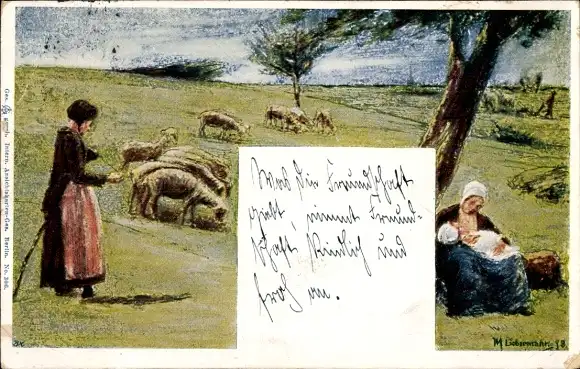 Was die Freundschaft
giebt nimmt Freund-
schaft kindlich und
froh an.
M Liebermann 98.
Ges. gesch. Intern. Ansichtskarten-Ges. Berlin. No. 296.